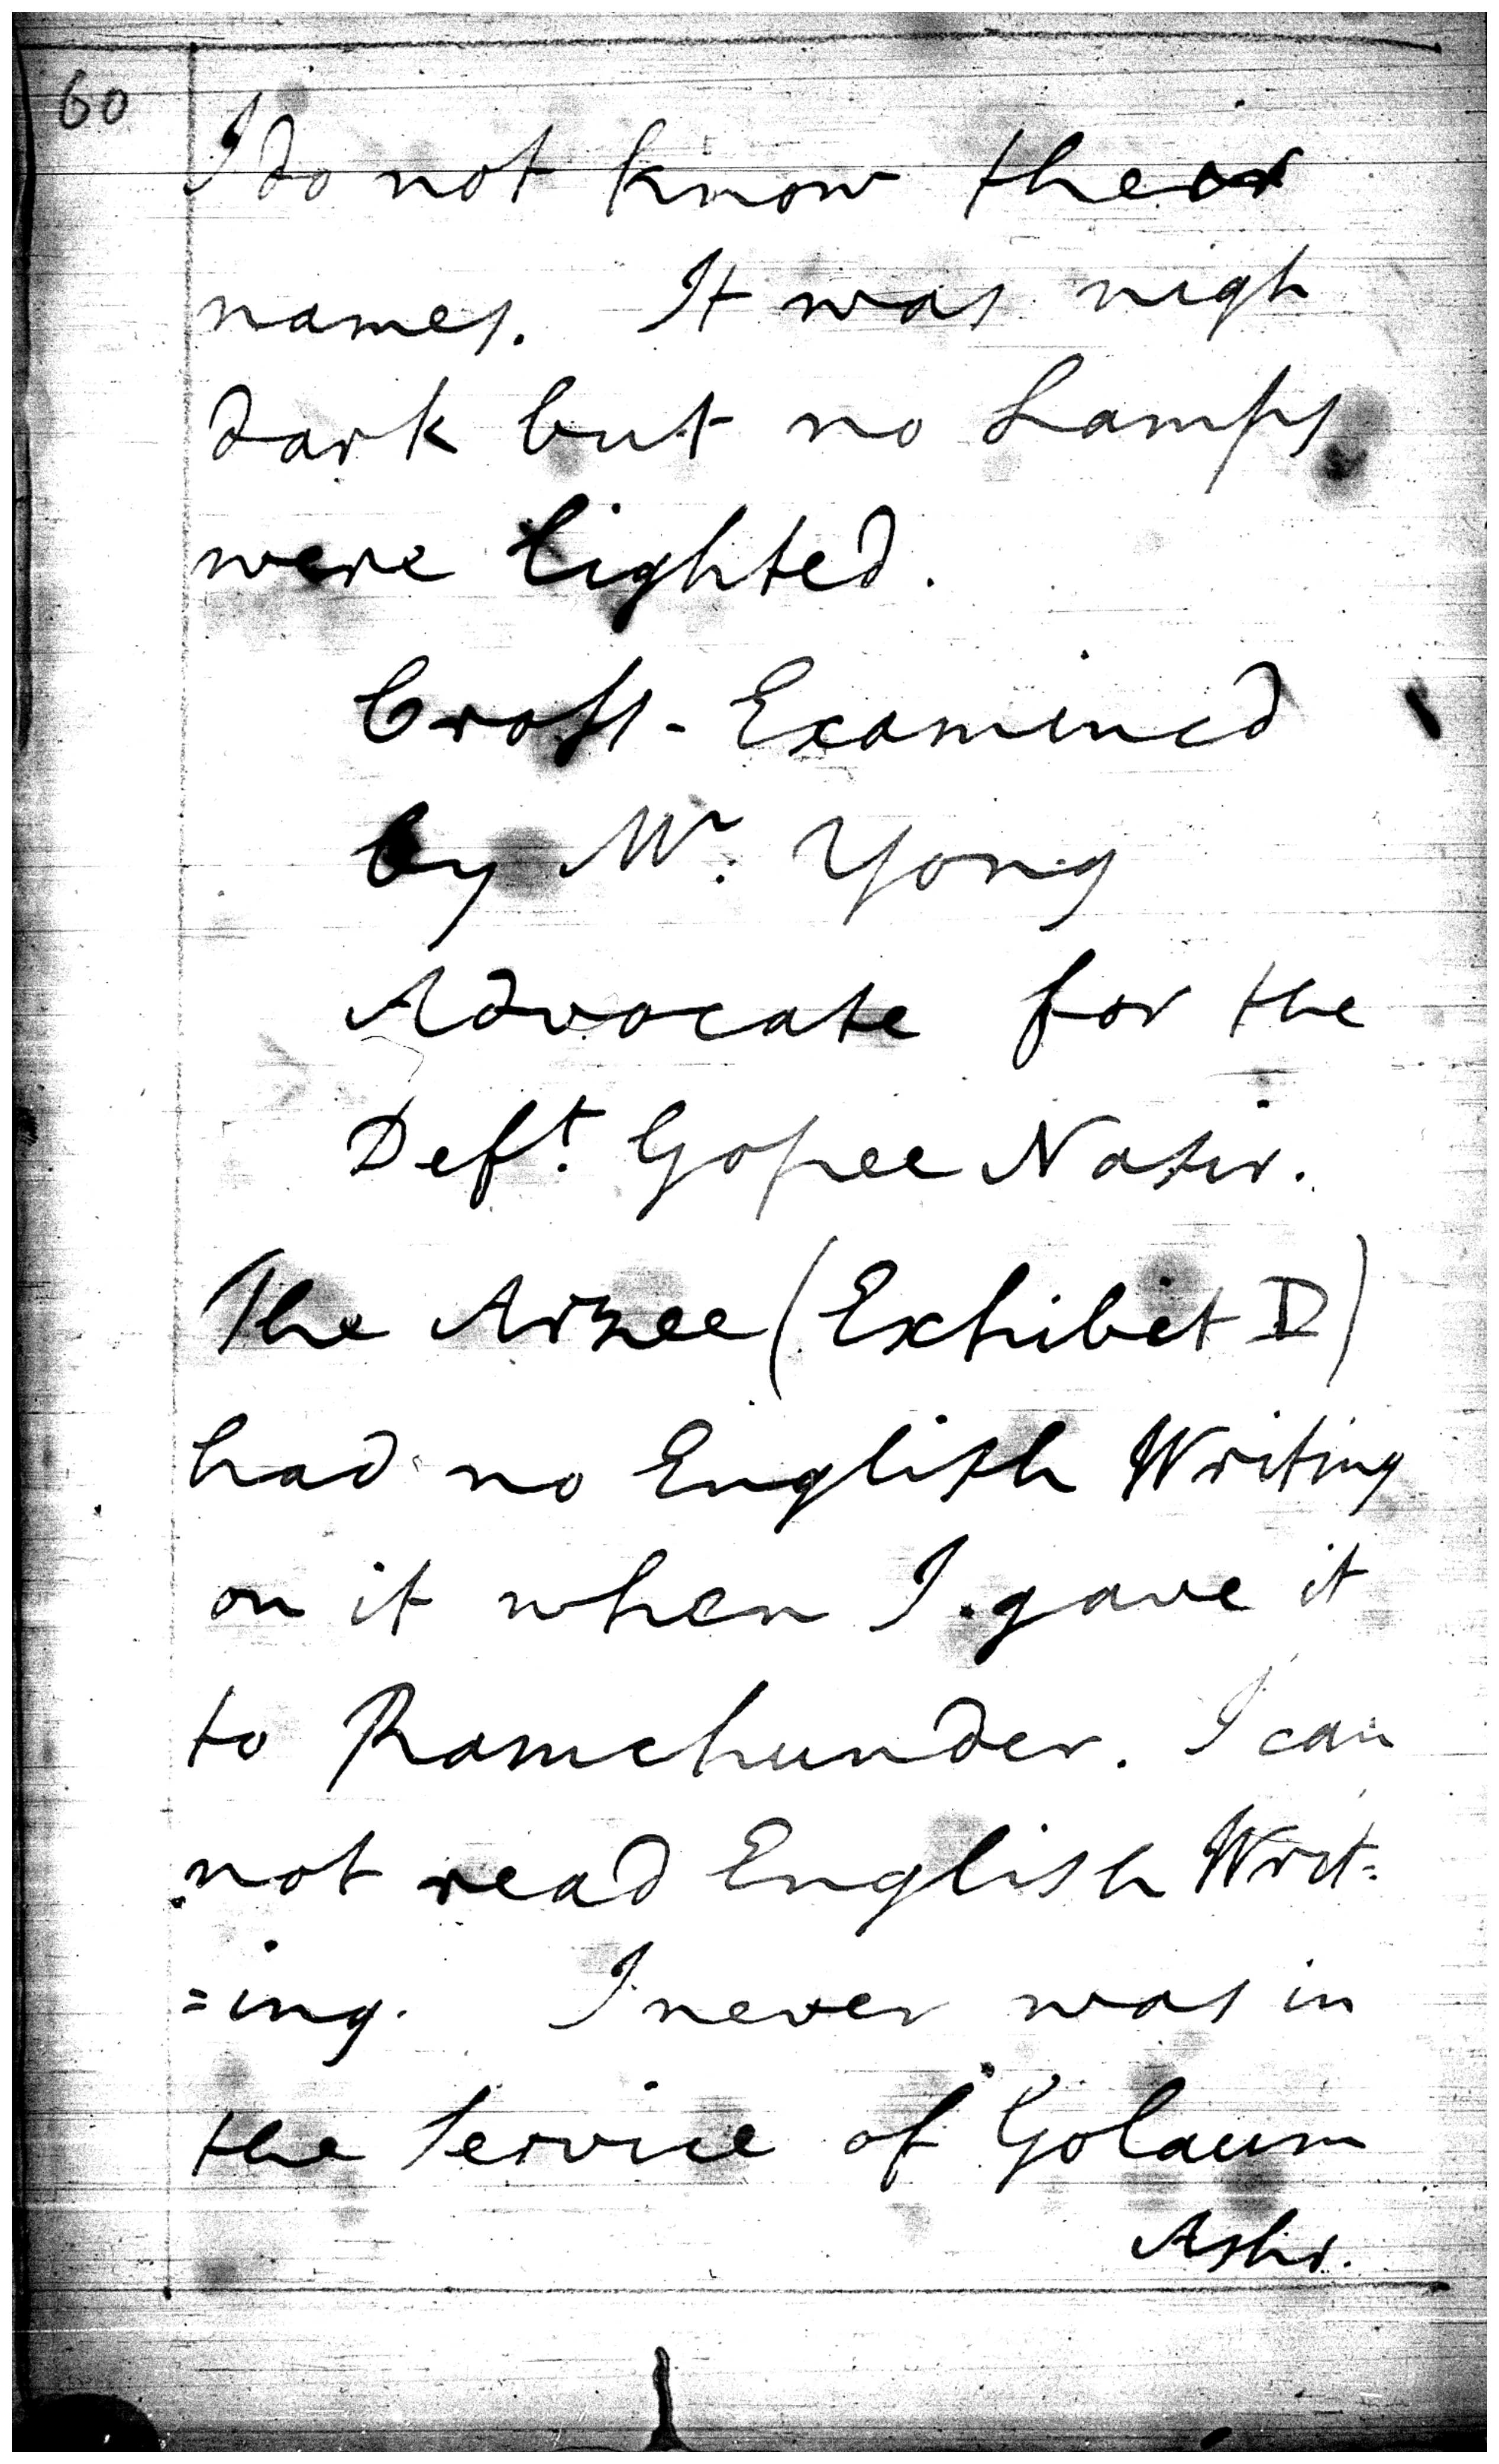 60
I do not know their
names. It was nigh
dark but no Lamps
were lighted.
Cross-Examined
by Mr. Yong
Advocate for the
Deft. Gopee Nasir.
The Arzee (Exhibit D)
had no English Writing
on it when I gave it
to Ramchunder. I can
not read English Writ=
=ing. I never was in
the Service of Golaum
Ashr.